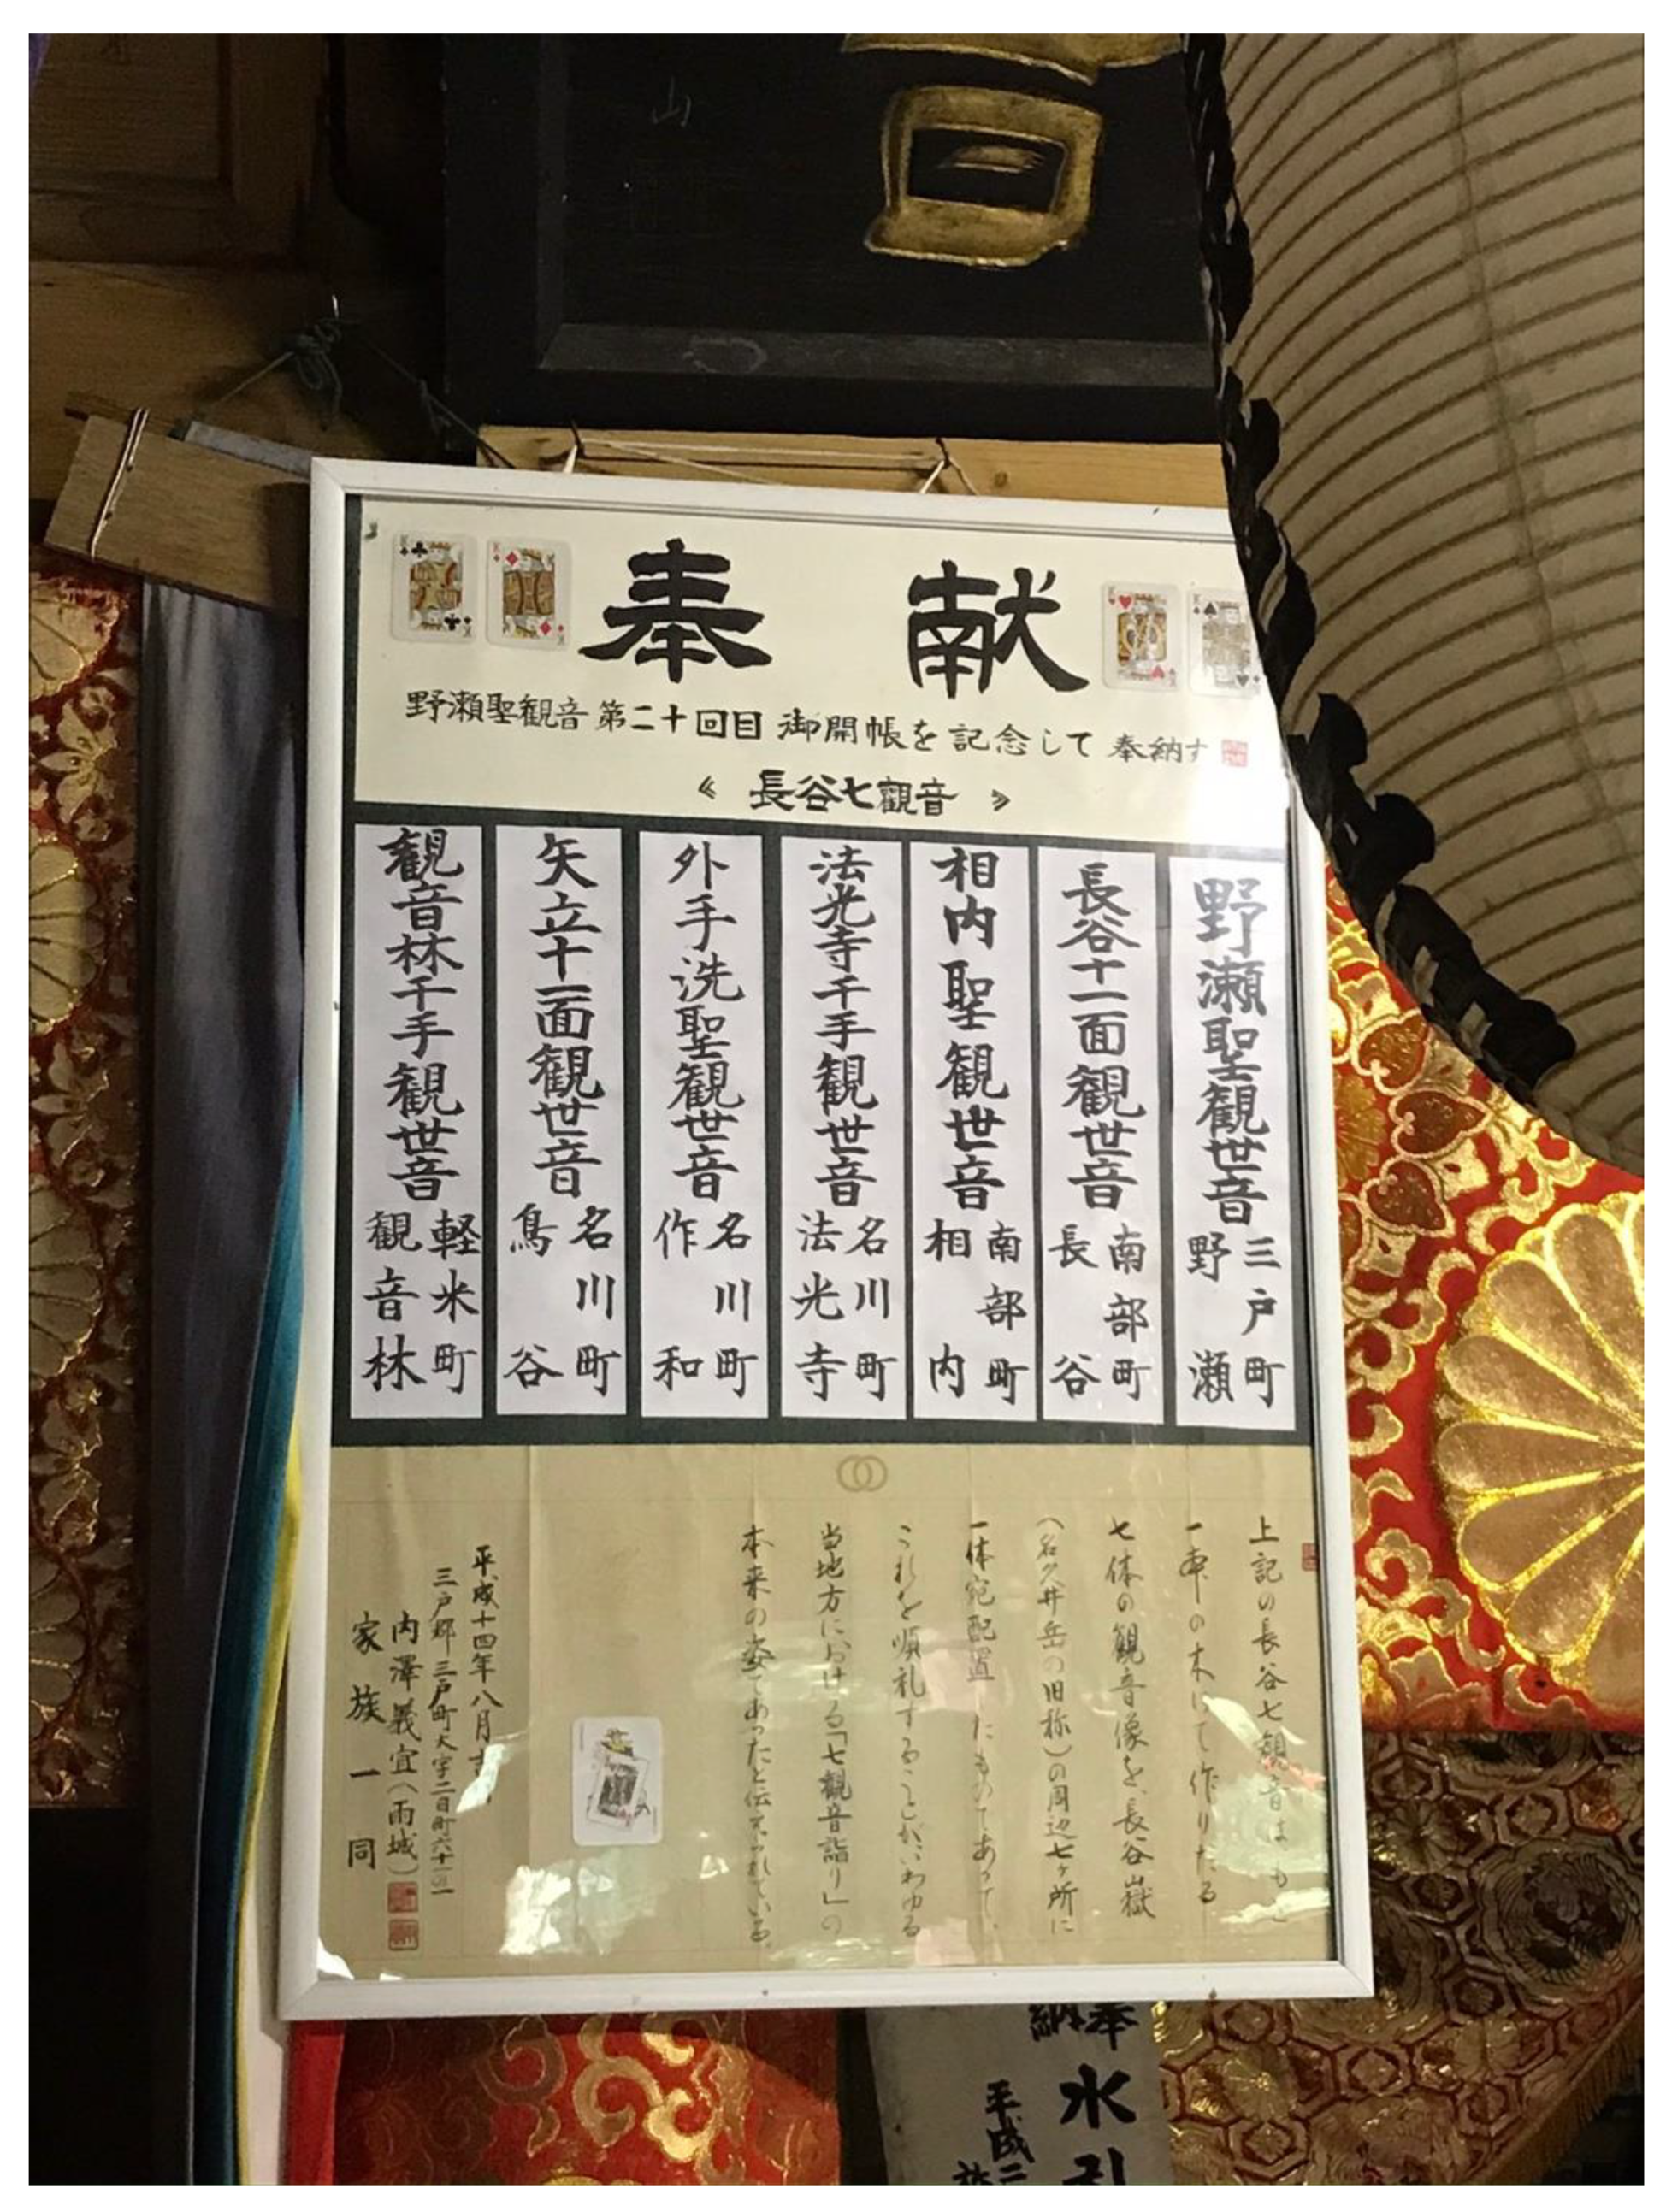 山
奉献
野瀬聖観音第二十回目 御開帳を記念して 奉納す
《 長谷七観音 》
野瀬聖観世音
三戸町
野瀬
長谷十一面観世音
南部町
長谷
相内聖観世音
南部町
相内
法光寺千手観世音
名川町
法光寺
外手洗聖観世音
名川町
作和
矢立十一面観世音
名川町
鳥谷
観音林千手観世音
軽米町
観音林
上記の長谷七観音はもと
一本の木にて作りたる
七体の観音像を、長谷嶽
(名久井岳の旧称)の周辺七ヶ所に
一体宛配置したものであって、
これを順礼することがいわゆる
当地方における「七観音詣り」の
本来の姿であったと伝えられている。
平成十四年八月吉
三戸郡三戸町大字二日町六十一の一
内澤義宜(雨城)
家族一同
奉納
水引
平成二